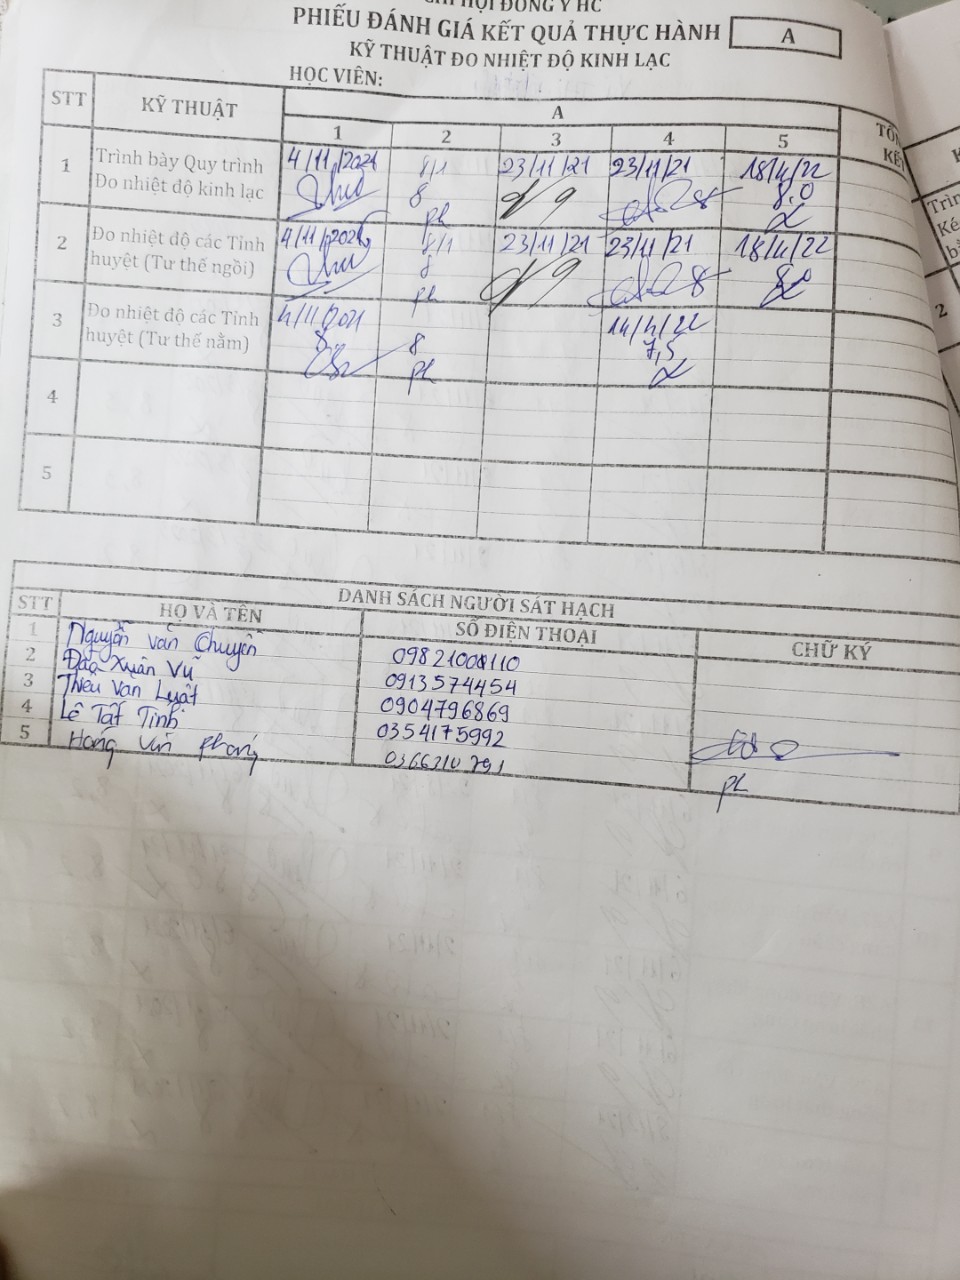 CHI HỘI ĐÔNG Y HC
PHIẾU ĐÁNH GIÁ KẾT QUẢ THỰC HÀNH A
KỸ THUẬT ĐO NHIỆT ĐỘ KINH LẠC
HỌC VIÊN:
STT KỸ THUẬT A
1 2 3 4 5
1 Trình bày Quy trình 4/11/2021 8/1 23/11/21 23/11/21 18/4/22
Đo nhiệt độ kinh lạc 8 9 8 8.0
ph
2 Đo nhiệt độ các Tỉnh 4/11/2021 8/1 23/11/21 23/11/21 18/4/22
huyệt (Tư thế ngồi) 8 9 8
ph
3 Đo nhiệt độ các Tỉnh 4/11/2021 14/4/22
huyệt (Tư thế nằm) 8 8 7,5
ph
4
5
DANH SÁCH NGƯỜI SÁT HẠCH
STT HỌ VÀ TÊN SỐ ĐIỆN THOẠI CHỮ KÝ
1 Nguyễn văn Chuyên
2 Đào Xuân Vũ 0913574454
3 Thiều Van Luật 0904796869
4 Lê Tất Tính 0354175992
5 Hoàng Văn phong 0366310791
ph
2